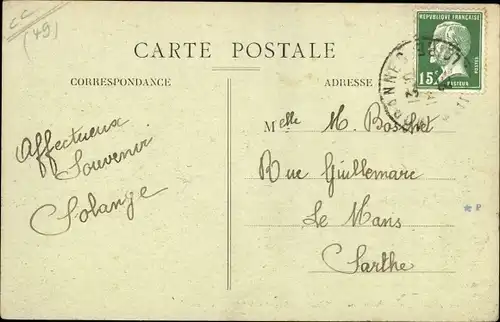 CC
(49)
CARTE POSTALE
CORRESPONDANCE
ADRESSE
REPUBLIQUE FRANÇAISE
15c
POSTES
PASTEUR
Affectueux
Souvenir
Solange
Melle M.
Rue Guillemare
Le Mans
Sarthe